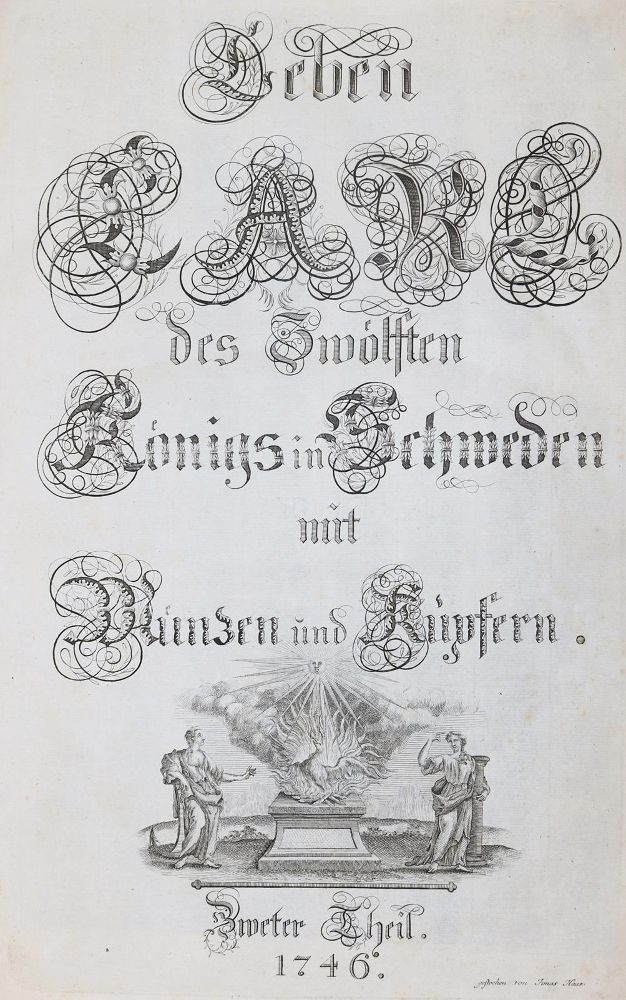 Leben
CARL
des Zwölften
Königs in Schweden
mit
Münzen und Kupfern.
Zweter Theil.
1746.
gestochen von Jonas Haas.